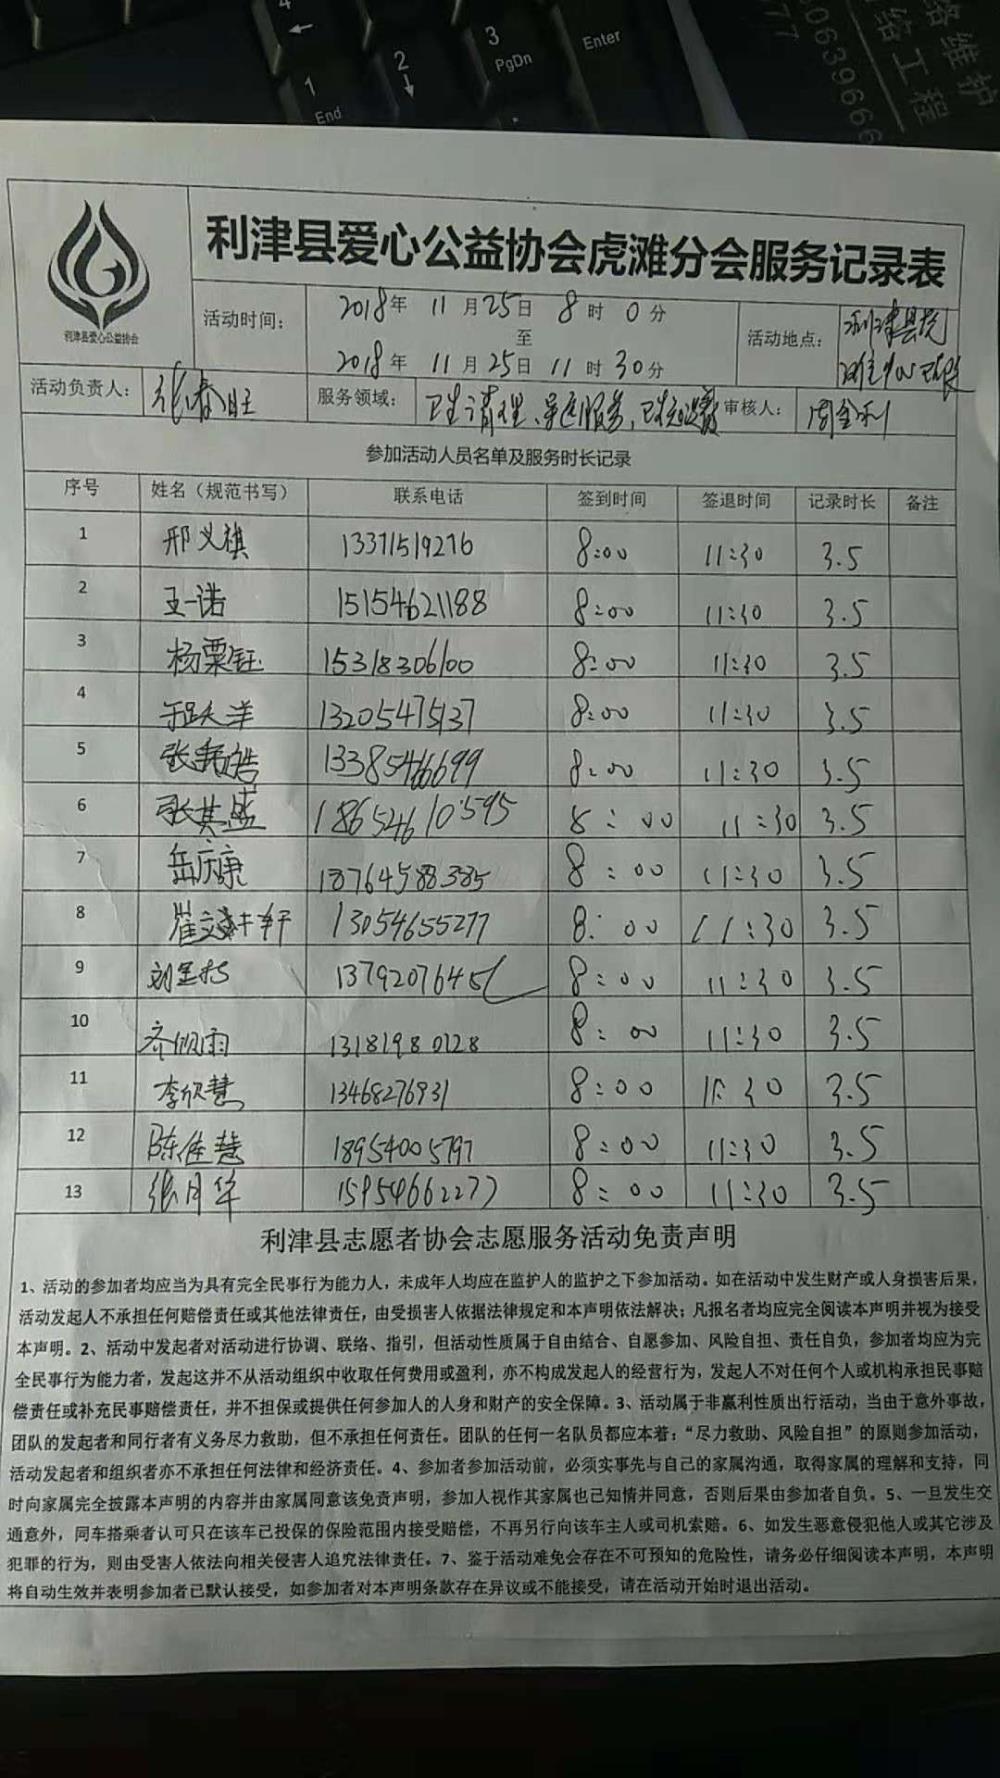 4
1
End
2
3
PgDn
Enter
络维护
络工程
0639666
777
利津县爱心公益协会
利津县爱心公益协会虎滩分会服务记录表
活动时间： 2018年 11月25日 8时 0分
至
2018年 11月25日 11时30分
活动地点： 利津县虎
活动负责人： 张春旺 服务领域： 卫生清理、 审核人： 周金利
参加活动人员名单及服务时长记录
序号 姓名（规范书写） 联系电话 签到时间 签退时间 记录时长 备注
1 邢义祺 13371519276 8:00 11:30 3.5
2 王一诺 15154621188 8:00 11:30 3.5
3 杨粟钰 15318306100 8:00 11:30 3.5
4 13205475137 8:00 11:30 3.5
5 13385466699 8:00 11:30 3.5
6 张其盛 18652610595 8:00 11:30 3.5
7 岳庆康 18764588385 8:00 11:30 3.5
8 崔文轩 13054655277 8:00 11:30 3.5
9 8:00 11:30 3.5
10 齐似雨 13181980128 8:00 11:30 3.5
11 李欣慧 13468276931 8:00 11:30 3.5
12 陈佳慧 18954005797 8:00 11:30 3.5
13 张月华 15954662277 8:00 11:30 3.5
利津县志愿者协会志愿服务活动免责声明
1、活动的参加者均应当为具有完全民事行为能力人，未成年人均应在监护人的监护之下参加活动。如在活动中发生财产或人身损害后果，
活动发起人不承担任何赔偿责任或其他法律责任，由受损害人依据法律规定和本声明依法解决；凡报名者均应完全阅读本声明并视为接受
本声明。2、活动中发起者对活动进行协调、联络、指引，但活动性质属于自由结合、自愿参加、风险自担、责任自负，参加者均应为完
全民事行为能力者，发起这并不从活动组织中收取任何费用或盈利，亦不构成发起人的经营行为，发起人不对任何个人或机构承担民事赔
偿责任或补充民事赔偿责任，并不担保或提供任何参加人的人身和财产的安全保障。3、活动属于非赢利性质出行活动，当由于意外事故，
团队的发起者和同行者有义务尽力救助，但不承担任何责任。团队的任何一名队员都应本着：“尽力救助、风险自担”的原则参加活动，
活动发起者和组织者亦不承担任何法律和经济责任。4、参加者参加活动前，必须实事先与自己的家属沟通，取得家属的理解和支持，同
时向家属完全披露本声明的内容并由家属同意该免责声明，参加人视作其家属也已知情并同意，否则后果由参加者自负。5、一旦发生交
通意外，同车搭乘者认可只在该车已投保的保险范围内接受赔偿，不再另行向该车主人或司机索赔。6、如发生恶意侵犯他人或其它涉及
犯罪的行为，则由受害人依法向相关侵害人追究法律责任。7、鉴于活动难免会存在不可预知的危险性，请务必仔细阅读本声明，本声明
将自动生效并表明参加者已默认接受，如参加者对本声明条款存在异议或不能接受，请在活动开始时退出活动。